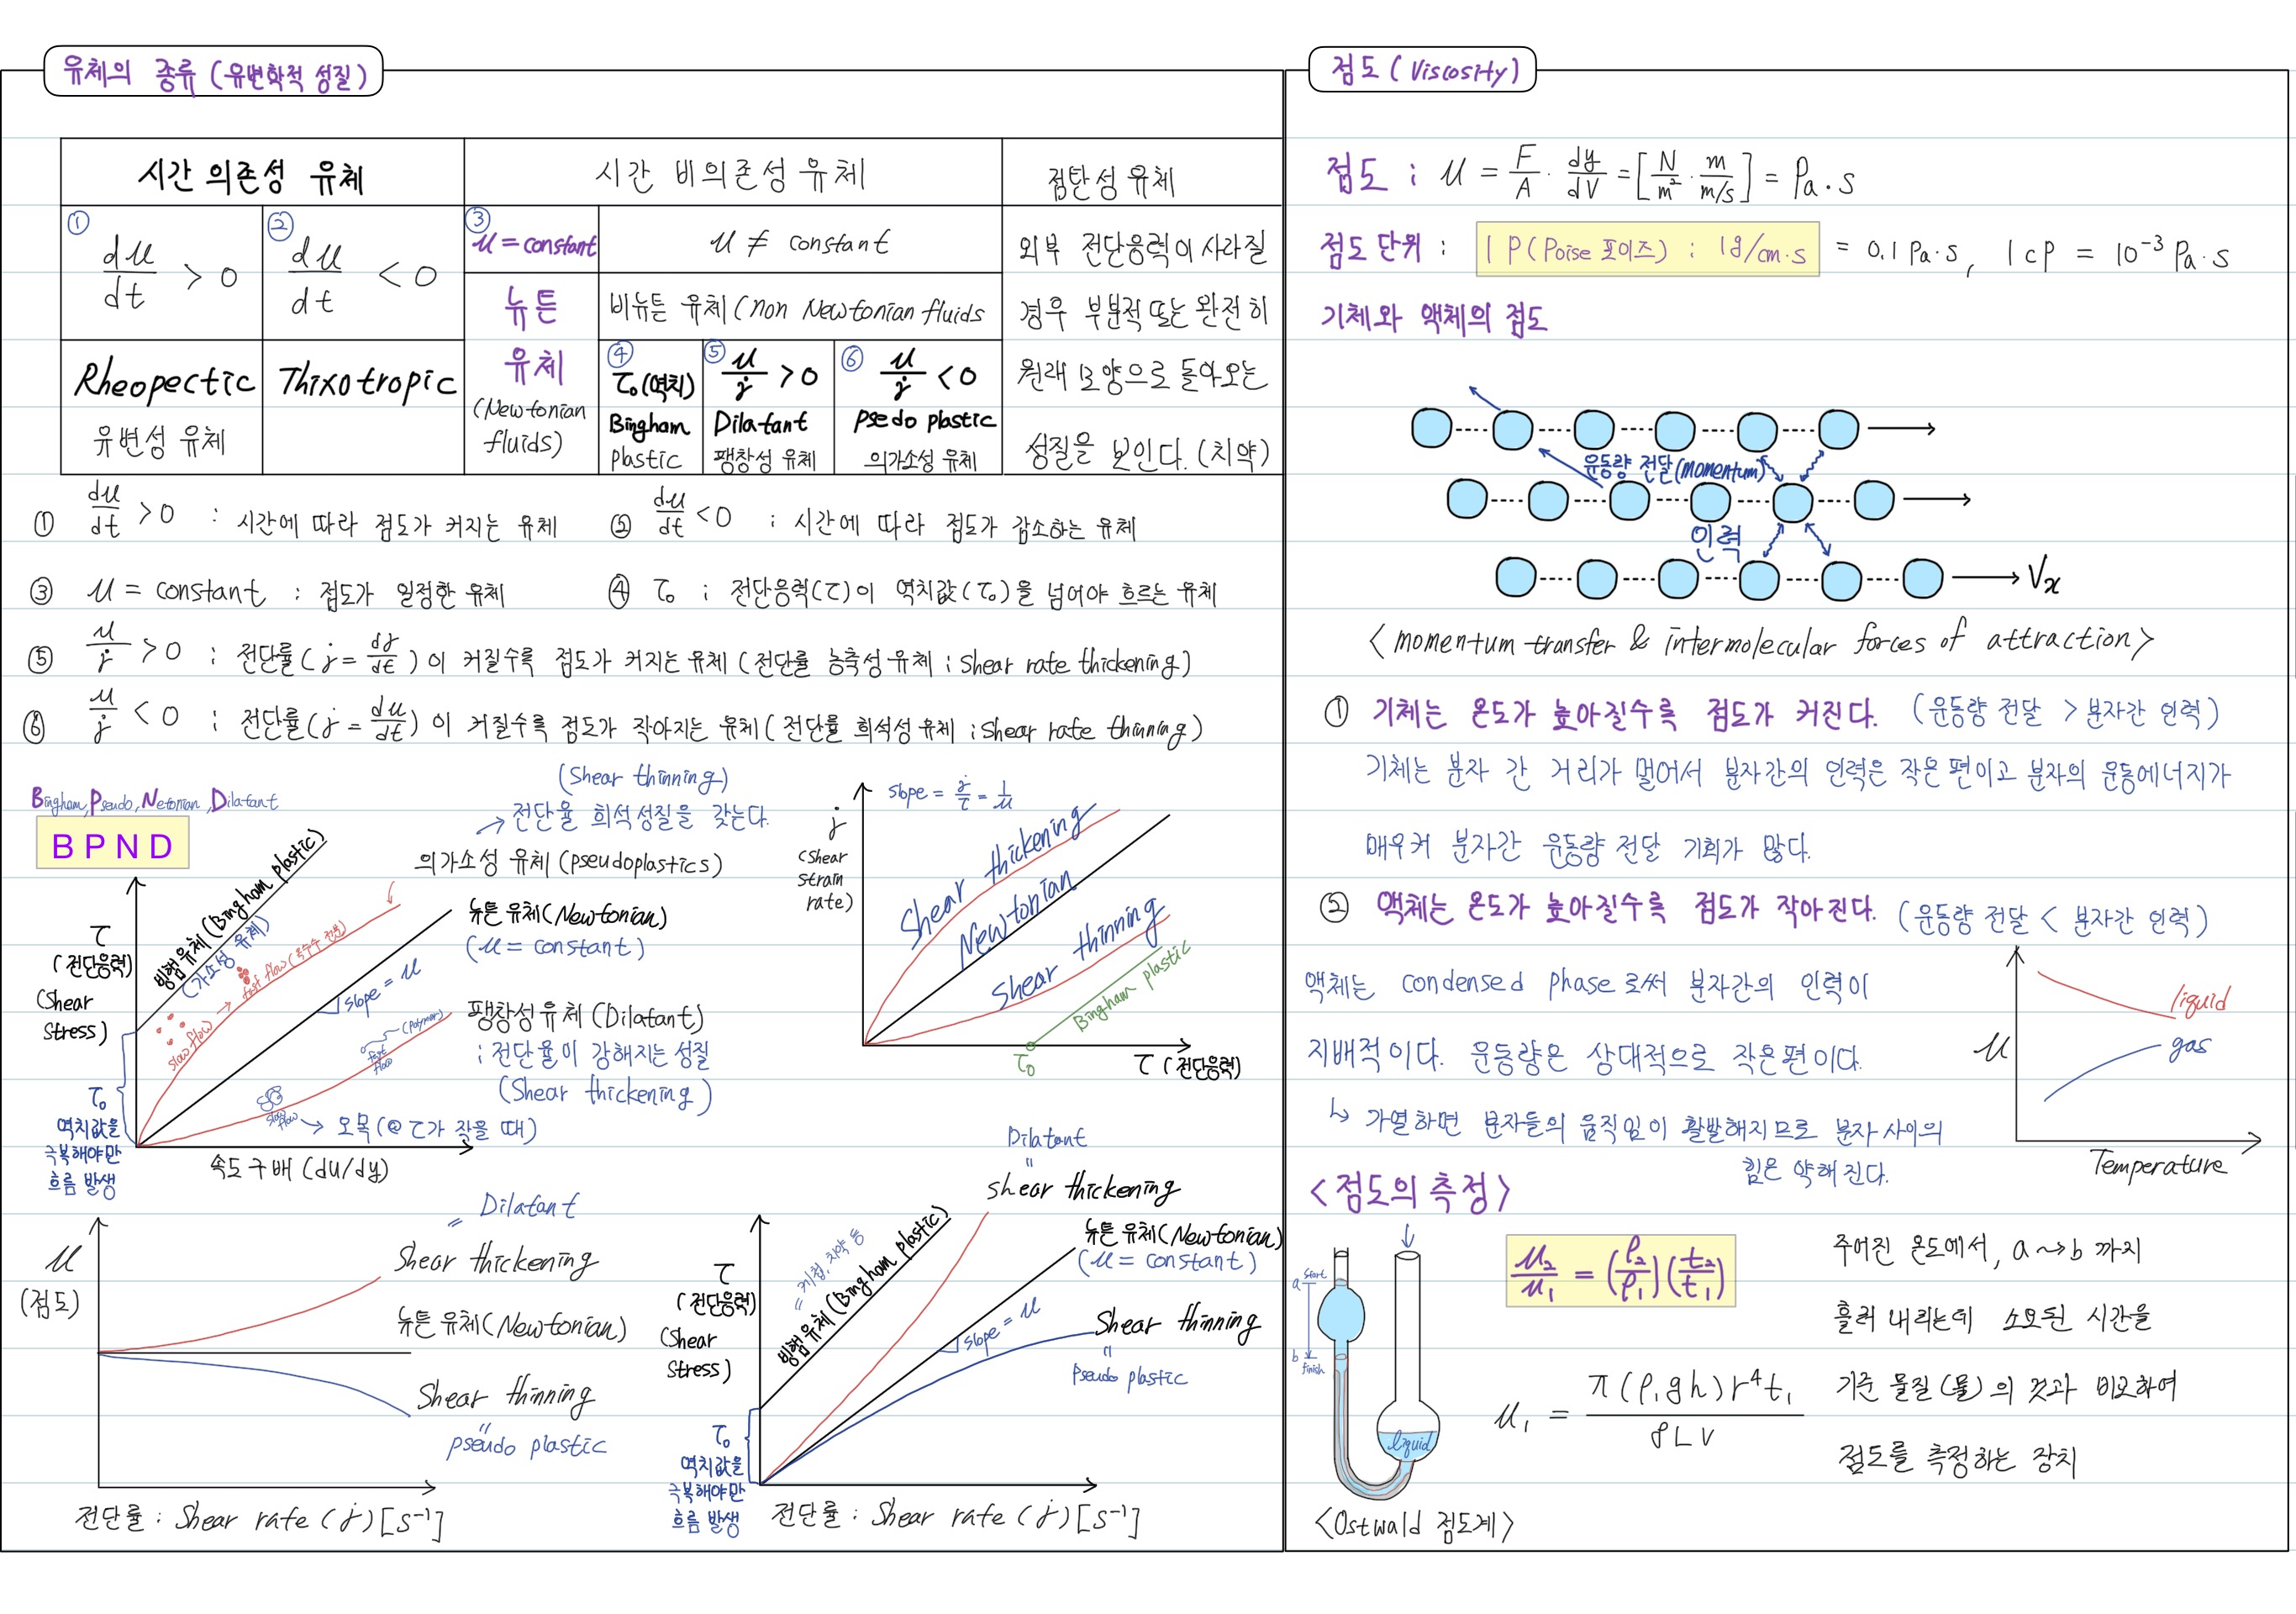 유체의 종류 (유변학적 성질)
시간 의존성 유체
시간 비의존성 유체
점탄성 유체
① dμ/dt > 0
② dμ/dt < 0
③ μ = constant
μ ≠ constant
뉴튼
유체
(Newtonian
fluids)
비뉴튼 유체 (non Newtonian fluids
Rheopectic
유변성 유체
Thixotropic
④ τ₀ (역치)
Bingham
plastic
⑤ μ/γ̇ > 0
Dilatant
팽창성 유체
⑥ μ/γ̇ < 0
Psedo plastic
의가소성 유체
외부 전단응력이 사라질
경우 부분적 또는 완전히
원래 모양으로 돌아오는
성질을 보인다. (치약)
① dμ/dt > 0 : 시간에 따라 점도가 커지는 유체
② dμ/dt < 0 ; 시간에 따라 점도가 감소하는 유체
③ μ = constant : 점도가 일정한 유체
④ τ₀ ; 전단응력(τ)이 역치값(τ₀)을 넘어야 흐르는 유체
⑤ μ/γ̇ > 0 ; 전단률(γ̇ = dγ/dt)이 커질수록 점도가 커지는 유체 (전단률 농축성 유체 ; shear rate thickening)
⑥ μ/γ̇ < 0 ; 전단률(γ̇ = du/dt)이 커질수록 점도가 작아지는 유체 (전단률 희석성 유체 ; shear rate thinning)
Bingham, Pseudo, Netonian, Dilatant
BPND
(Shear thinning)
→ 전단율 희석성질을 갖는다.
의가소성 유체 (pseudoplastics)
빙햄유체 (Bingham plastic)
(가소성 유체)
slow flow → fast flow (옥수수 전분)
뉴튼 유체 (Newtonian)
(μ = constant)
slope = μ
τ
(전단응력)
(Shear
Stress)
팽창성 유체 (Dilatant)
; 전단율이 강해지는 성질
(Shear thickening)
(polymer)
fast
flow
slow
flow
→ 오목 (@ τ가 작을 때)
τ₀
역치값을
극복해야만
흐름 발생
속도 구배 (du/dy)
slope = γ̇/τ = 1/μ
γ̇
(shear
strain
rate)
Shear thickening
Newtonian
shear thinning
Bingham plastic
τ₀
τ (전단응력)
μ
(점도)
= Dilatant
Shear thickening
뉴튼 유체 (Newtonian)
Shear thinning
"
pseudo plastic
전단률 : Shear rate (γ̇) [s⁻¹]
Dilatant
"
shear thickening
τ
(전단응력)
(Shear
Stress)
= 케첩, 치약 등
빙햄유체 (Bingham plastic)
뉴튼 유체 (Newtonian)
(μ = constant)
slope = μ
Shear thinning
"
Pseudo plastic
τ₀
역치값을
극복해야만
흐름 발생
전단률 : Shear rate (γ̇) [s⁻¹]
점도 (Viscosity)
점도 ; μ = F/A · dy/dV = [N/m² · m/(m/s)] = Pa·s
점도 단위 : 1 P (Poise 포이즈) : 1g/cm·s = 0.1 Pa·s, 1 cP = 10⁻³ Pa·s
기체와 액체의 점도
운동량 전달 (momentum)
인력
Vx
<momentum transfer & intermolecular forces of attraction>
① 기체는 온도가 높아질수록 점도가 커진다. (운동량 전달 > 분자간 인력)
기체는 분자 간 거리가 멀어서 분자간의 인력은 작은 편이고 분자의 운동에너지가
매우커 분자간 운동량 전달 기회가 많다.
② 액체는 온도가 높아질수록 점도가 작아진다. (운동량 전달 < 분자간 인력)
액체는 condensed phase로써 분자간의 인력이
지배적이다. 운동량은 상대적으로 작은편이다.
↳ 가열하면 분자들의 움직임이 활발해지므로 분자 사이의
힘은 약해진다.
μ
liquid
gas
Temperature
<점도의 측정>
a start
b finish
liquid
<Ostwald 점도계>
μ₂/μ₁ = (ρ₂/ρ₁)(t₂/t₁)
μ₁ = π(ρ₁gh)r⁴t₁ / 8LV
주어진 온도에서, a→b 까지
흘러 내리는데 소요된 시간을
기준 물질(물)의 것과 비교하여
점도를 측정하는 장치